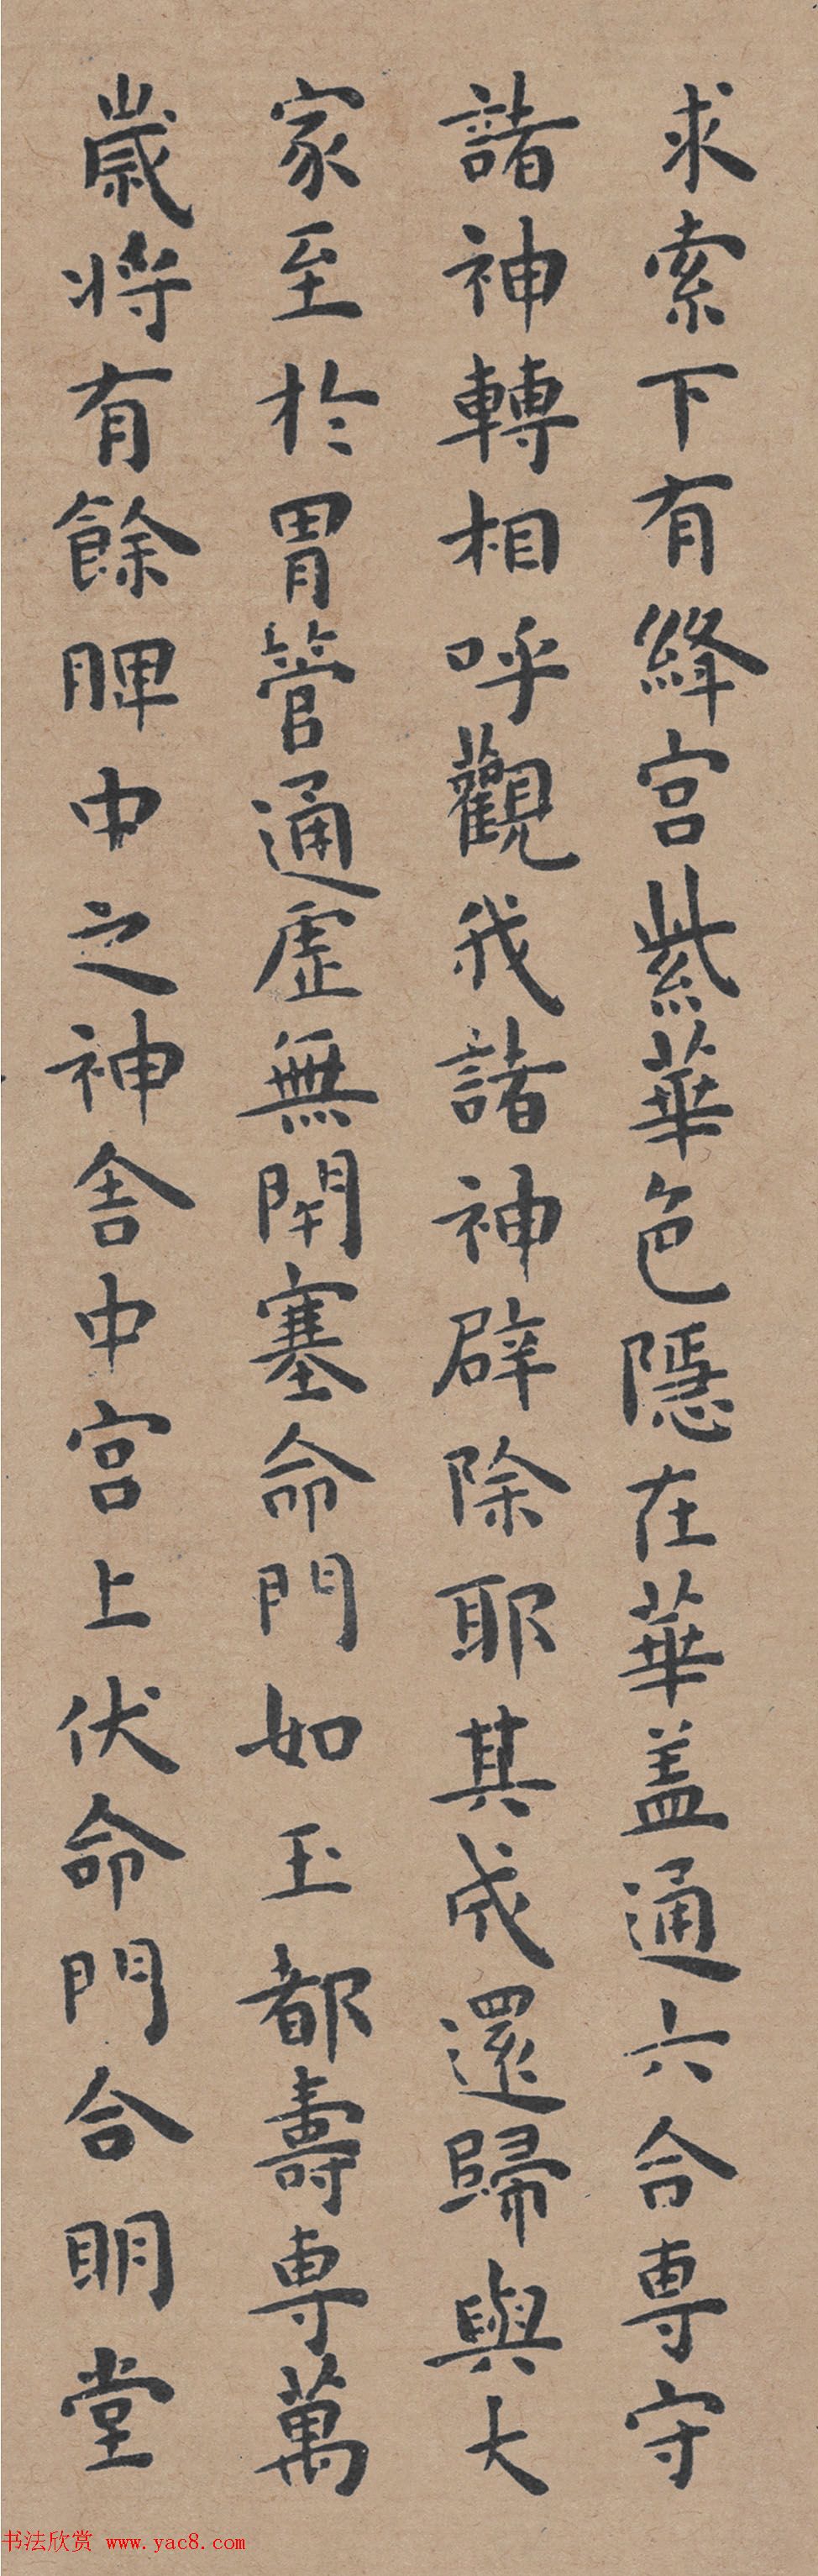 求索下有絳宮紫華色隱在華盖通六合専守
諸神轉相呼觀我諸神辟除耶其成還歸與大
家至於胃管通虛無閇塞命門如玉都壽専萬
歲将有餘脾中之神舍中宮上伏命門合明堂
书法欣赏 www.yac8.com